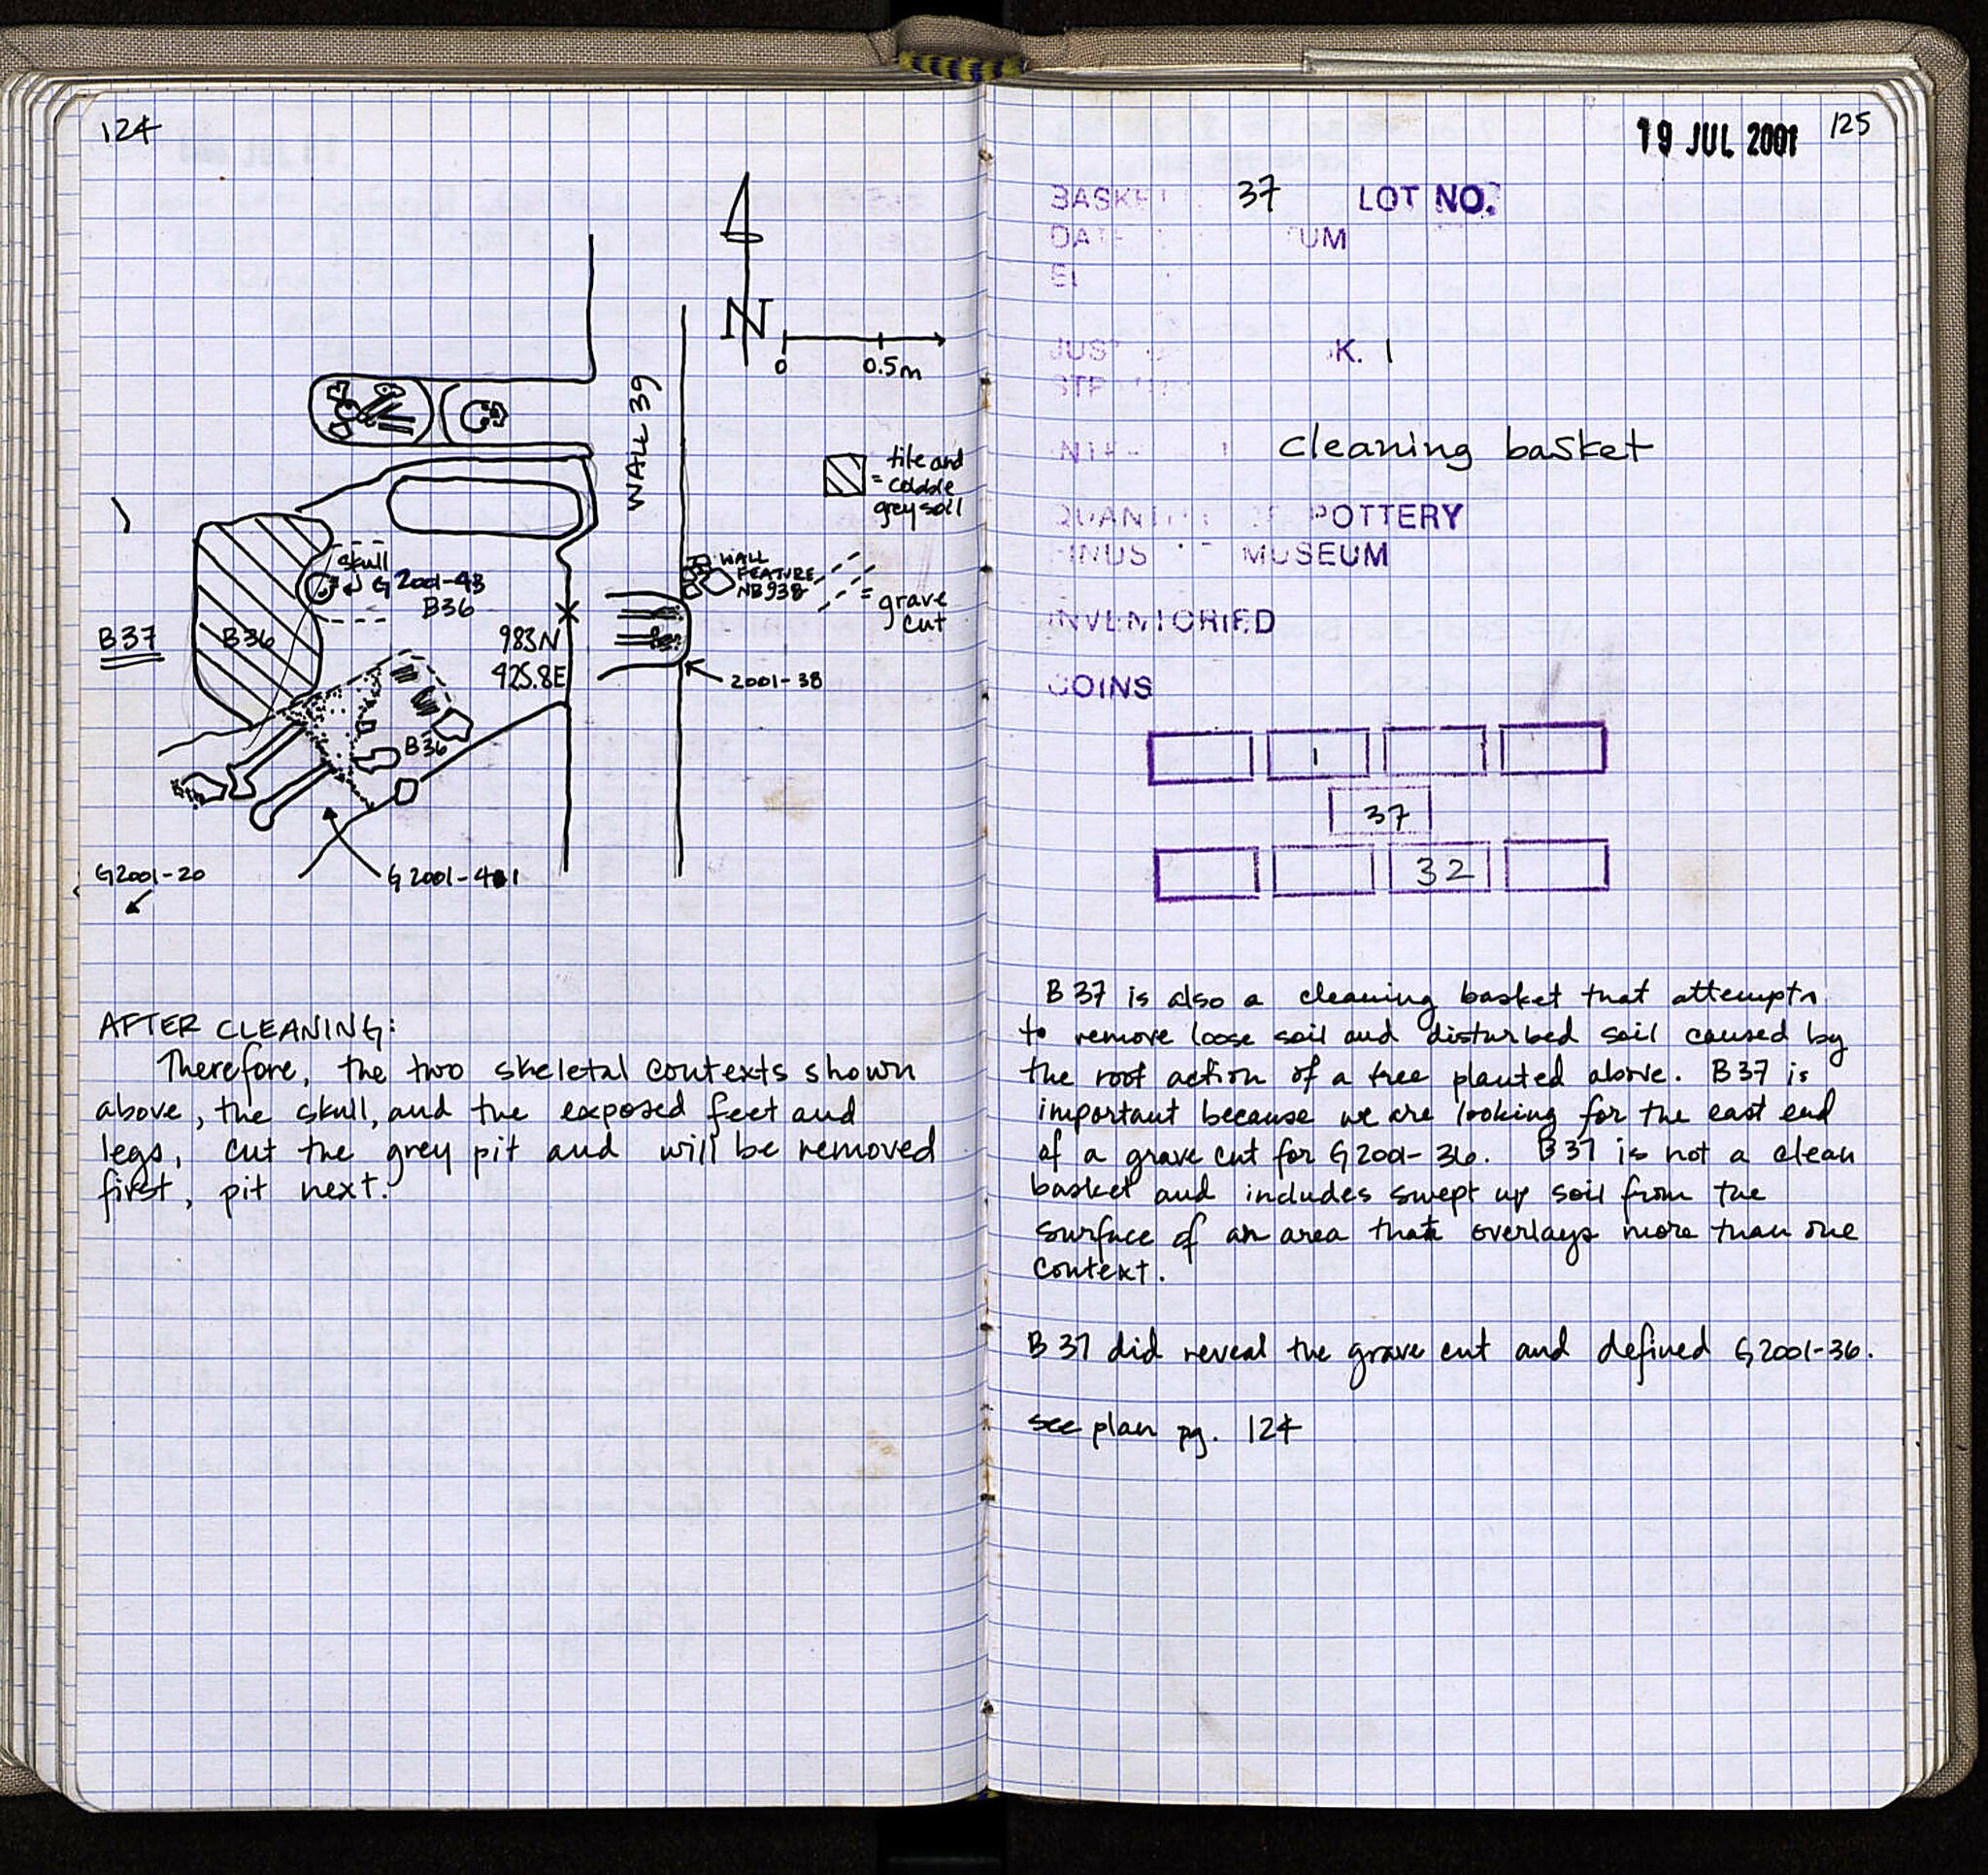 124
N
0 0.5m
WALL 39
tile and
= cobble
grey soil
skull
G 2001-43
B36
WALL
FEATURE
NB938
= grave
cut
B37
B36
983N
425.8E
2001-38
B36
G2001-20
G 2001-41
AFTER CLEANING:
Therefore, the two skeletal contexts shown
above, the skull, and the exposed feet and
legs, cut the grey pit and will be removed
first, pit next.
19 JUL 2001 125
BASKE 37 LOT NO.
DAT TUM
El
JUST K. 1
STR
cleaning basket
QUANT OF POTTERY
MUSEUM
INVENTORIED
COINS
1
37
32
B 37 is also a cleaning basket that attempts
to remove loose soil and disturbed soil caused by
the root action of a tree planted above. B 37 is
important because we are looking for the east end
of a grave cut for G2001-36. B 37 is not a clean
basket and includes swept up soil from the
surface of an area that overlays more than one
context.
B 37 did reveal the grave cut and defined G2001-36.
see plan pg. 124